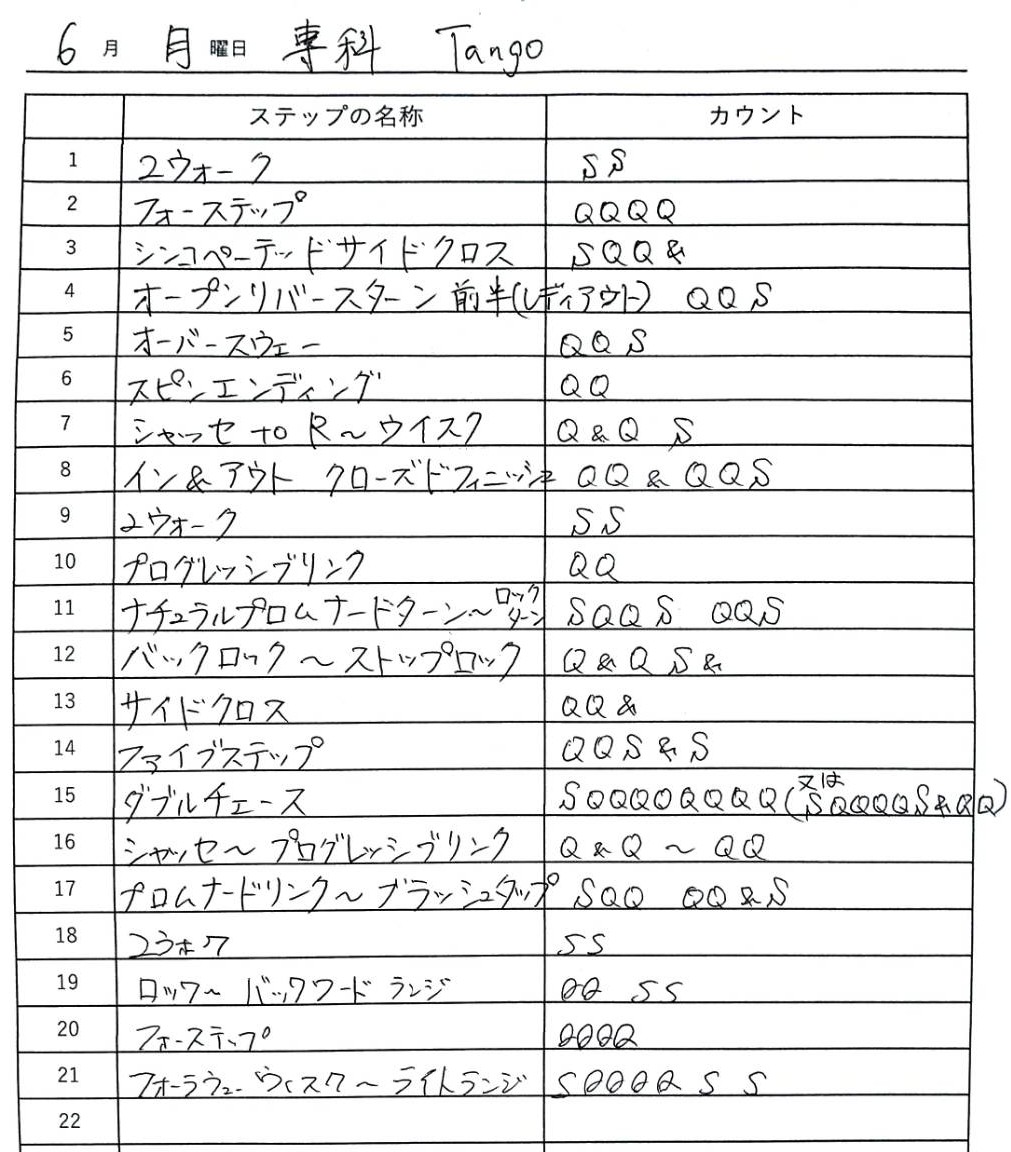 6月 月曜日 専科 Tango
ステップの名称 カウント
1 2ウォーク SS
2 フォーステップ QQQQ
3 シンコペーテッドサイドクロス SQQ&
4 オープンリバースターン前半(レディアウト) QQS
5 オーバースウェー QQS
6 スピンエンディング QQ
7 シャッセ to R～ウイスク Q&Q S
8 イン&アウト クローズドフィニッシュ QQ&QQS
9 2ウォーク SS
10 プログレッシブリンク QQ
11 ナチュラルプロムナードターン～ロックターン SQQS QQS
12 バックロック～ストップロック Q&QS&
13 サイドクロス QQ&
14 ファイブステップ QQS&S
15 ダブルチェース SQQQQQQQ(又はSQQQQS&QQ)
16 シャッセ～プログレッシブリンク Q&Q～QQ
17 プロムナードリンク～ブラッシュタップ SQQ QQ&S
18 2ウォク SS
19 ロック～バックワードランジ QQ SS
20 フォーステップ QQQQ
21 フォーラウェーウィスク～ライトランジ SQQQQ S S
22